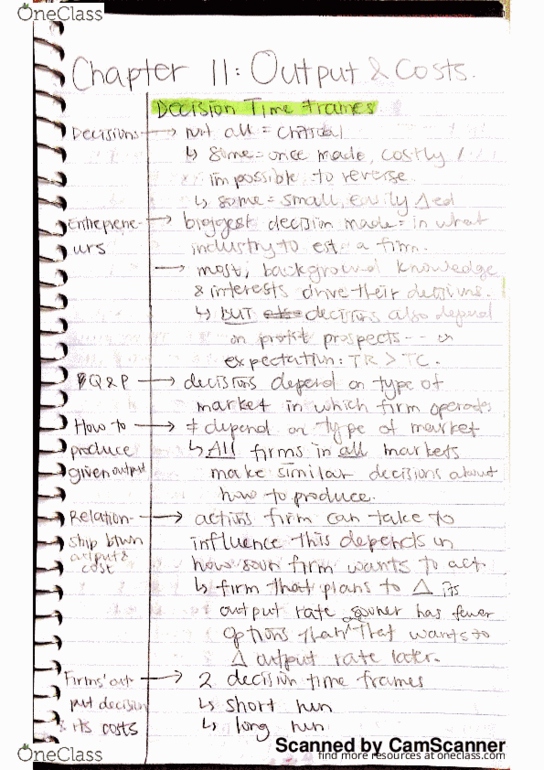 OneClass
Chapter 11: Output & Costs.
Decision Time Frames
Decisions → not all = critical
↳ some = once made, costly /
impossible to reverse
↳ some = small, easily Δed
Entreprene- → biggest decision made = in what
urs industry to est a firm.
→ most, background knowledge
& interests drive their decisions.
↳ BUT decisions also depend
on profit prospects -- on
expectation: TR > TC.
Q&P → decisions depend on type of
market in which firm operates
How to → ≠ depend on type of market
produce ↳ All firms in all markets
given output make similar decisions about
how to produce.
Relation- → actions firm can take to
ship btwn influence this depends on
output & how soon firm wants to act
cost ↳ firm that plans to Δ its
output rate sooner has fewer
options than that wants to
Δ output rate later.
Firms' out → 2 decision time frames
put decision ↳ short run
& its costs ↳ long run
Scanned by CamScanner
OneClass find more resources at oneclass.com